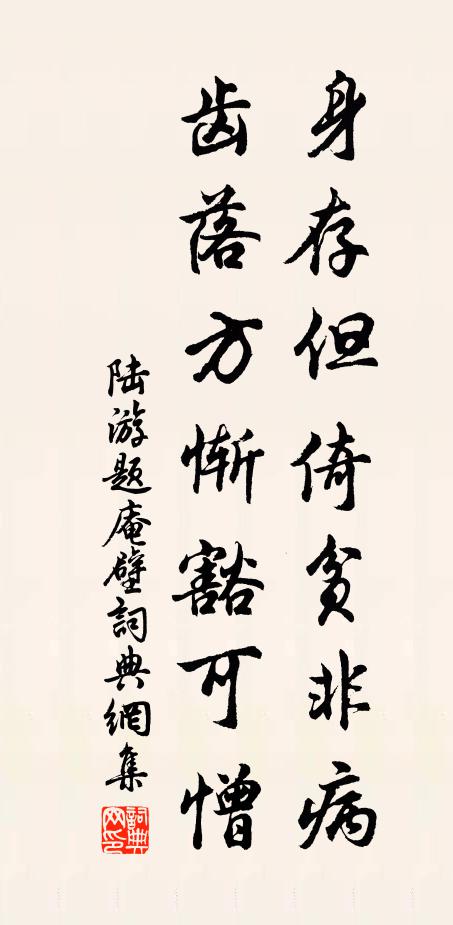 身存但倚贫非病
齿落方惭豁可憎
陆游题庵壁詞典網集
詞典网印